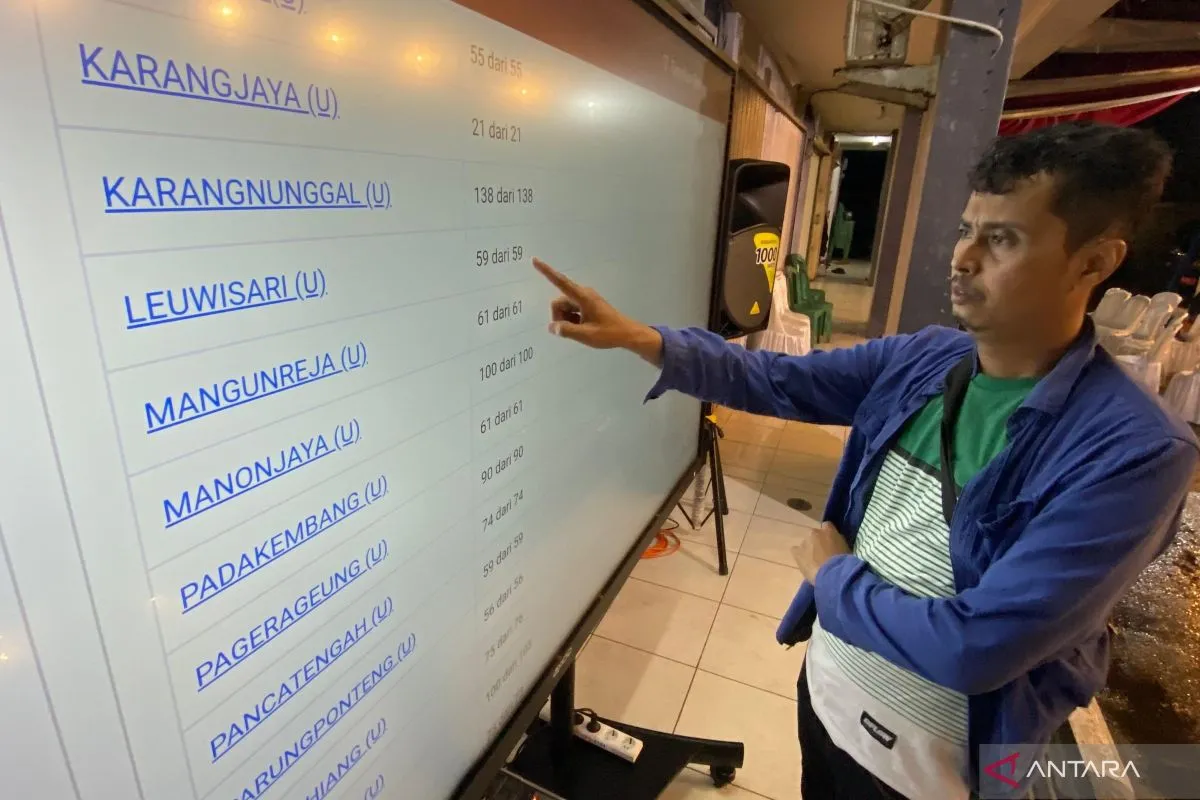 (U)
55 dari 55
KARANGJAYA (U) 21 dari 21
KARANGNUNGGAL (U) 138 dari 138
LEUWISARI (U) 59 dari 59
MANGUNREJA (U) 61 dari 61
MANONJAYA (U) 100 dari 100
PADAKEMBANG (U) 61 dari 61
PAGERAGEUNG (U) 90 dari 90
PANCATENGAH (U) 74 dari 74
ARUNGPONTENG (U) 59 dari 59
HIANG (U) 56 dari 56
(U)
100 dari 100
1000
ANTARA